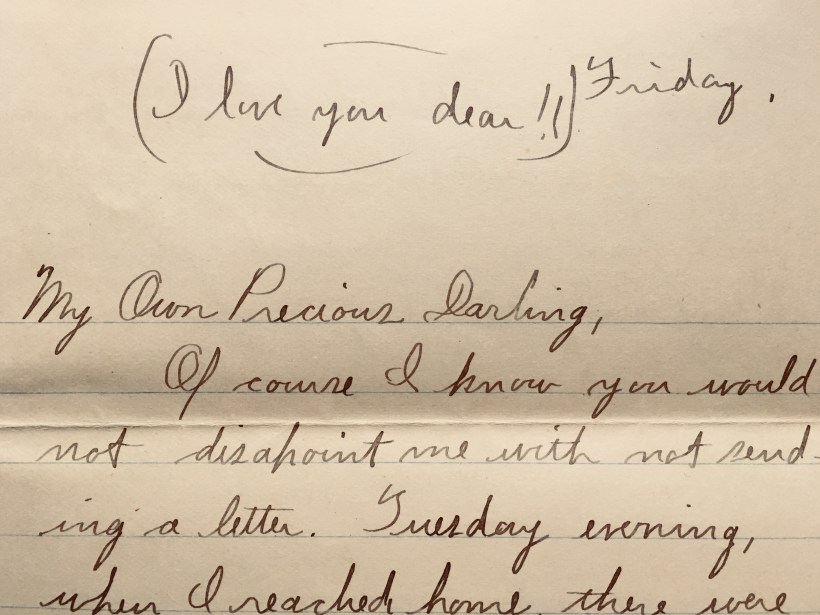 (I love you dear!!) Friday.
My Own Precious Darling,
Of course I know you would
not disapoint me with not send-
ing a letter. Tuesday evening,
when I reached home, there were